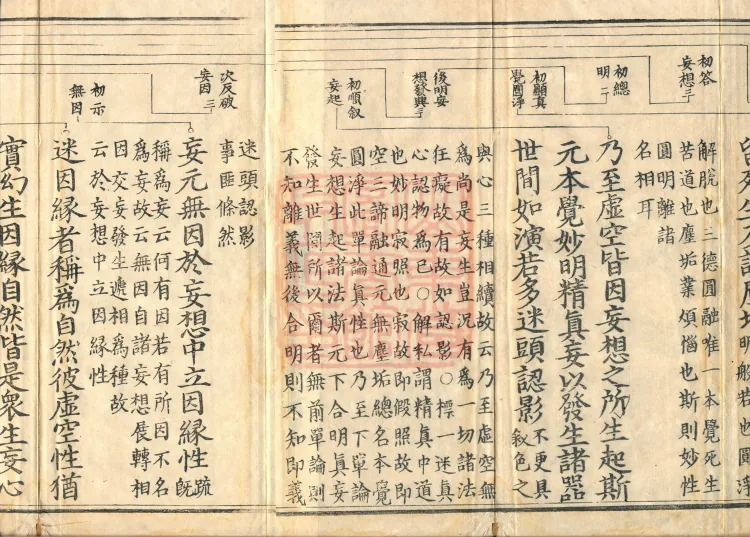 初答
妄想三
初總
明二
初顯真
覺圓淨
後明妄
想發興
初順叙
妄起
次反破
妄因二
初示
無因
明般若也圓淨
解脫也三德圓融唯一本覺死生
苦道也塵垢業煩惱也斯則妙性
圓明離諸
名相耳
乃至虛空皆因妄想之所生起斯
元本覺妙明精眞妄以發生諸器
世間如演若多迷頭認影不更具
叙色之
與心三種相續故云乃至虛空無
爲尚是妄生豈況有爲一切諸法
任癡故有故如認影○標一迷眞
心認物爲已○解私謂精眞中道
也妙明寂照也寂故即假照故即
空三諦融通元無塵垢總名本覺
圓淨此單論眞性也乃至下單論
妄想生起諸法斯元下合明眞妄
發生世間所以爾者無前單論則
不知離義無後合明則不知即義
迷頭認影
事匪條然
妄元無因於妄想中立因緣性疏
既
稱爲妄云何有因若有所因不名
爲妄故云無因自諸妄想展轉相
因交妄發生遞相爲種故
云於妄想中立因緣性
迷因緣者稱爲自然彼虛空性猶
實幻生因緣自然皆是衆生妄心